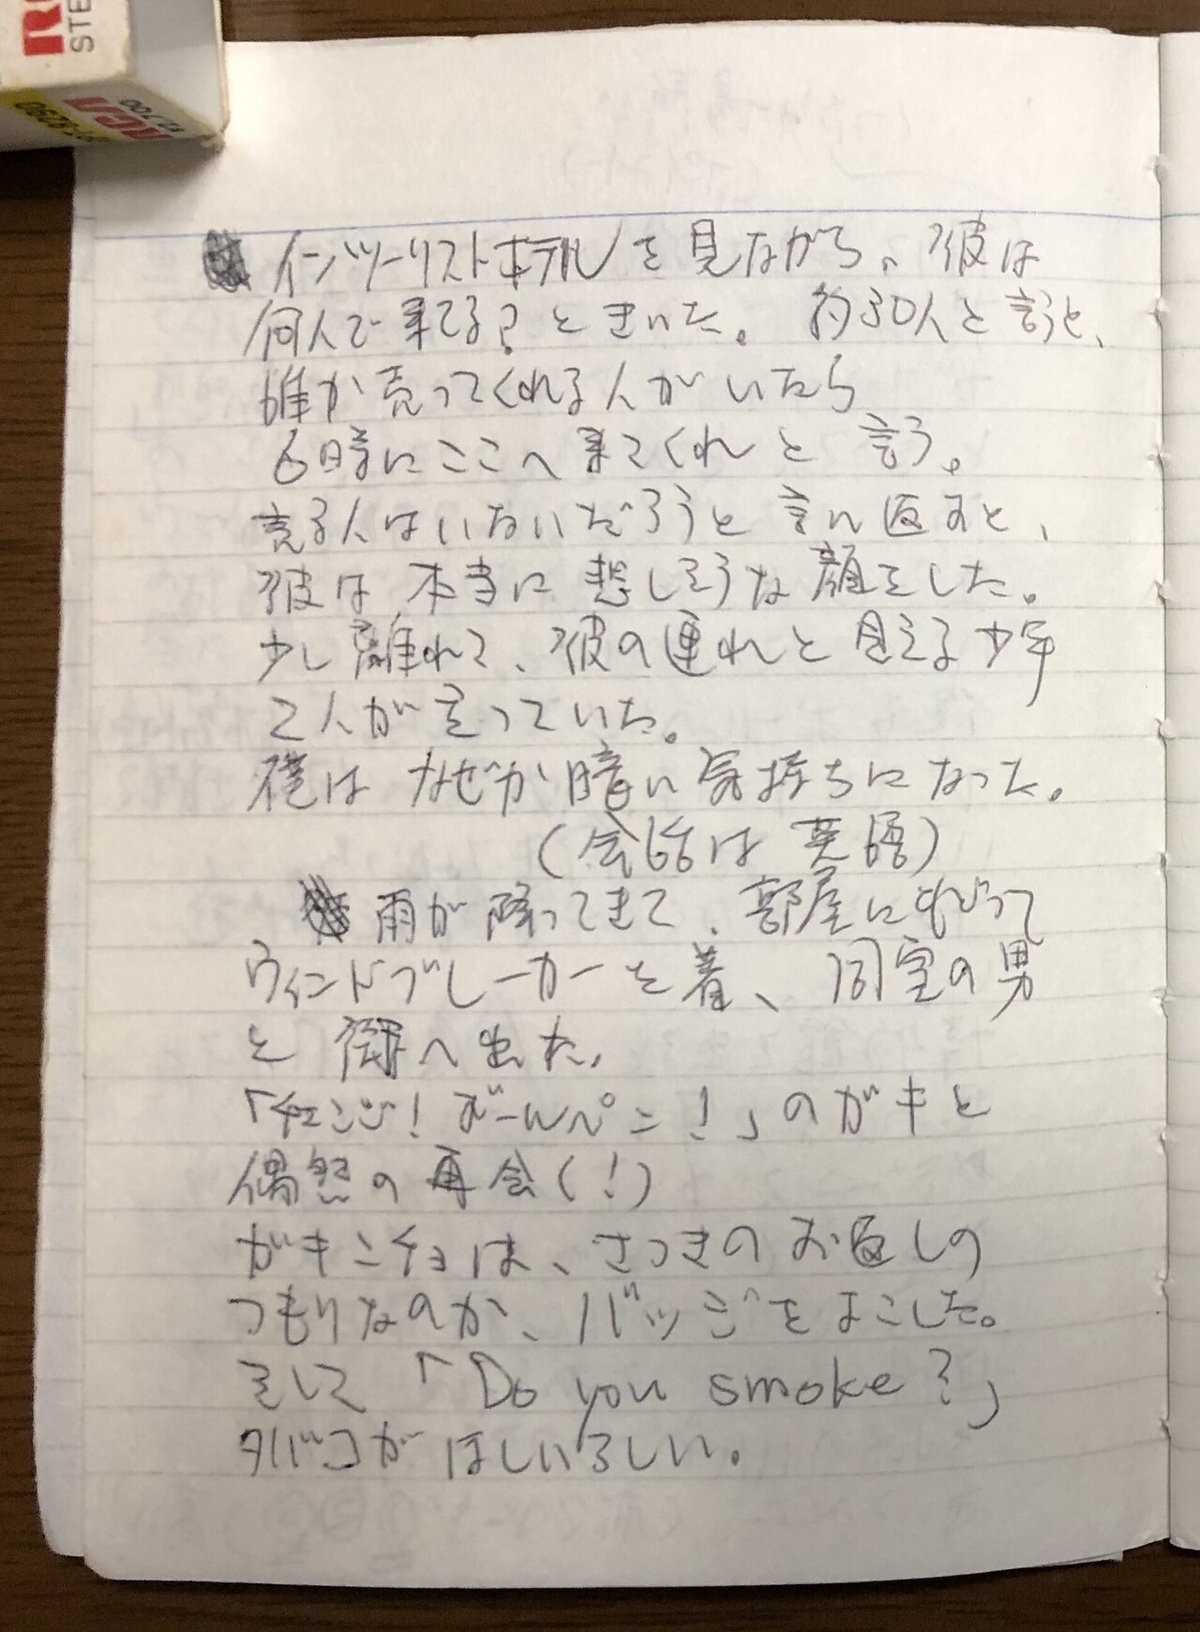 STE
インツーリストホテルを見ながら、彼は
何人で来てる?ときいた。約30人と言うと、
誰か売ってくれる人がいたら
6時にここへ来てくれと言う。
売る人はいないだろうと言い返すと、
彼は本当に悲しそうな顔をした。
少し離れて、彼の連れと見える少年
2人が立っていた。
僕はなぜか暗い気持ちになった。
(会話は英語)
雨が降ってきて、部屋にもどって
ウィンドブレーカーを着、同室の男
と街へ出た。
「チェンジ!ボールペン!」のガキと
偶然の再会(!)
ガキンチョは、さっきのお返しの
つもりなのか、バッジをよこした。
そして「Do you smoke?」
タバコがほしいらしい。